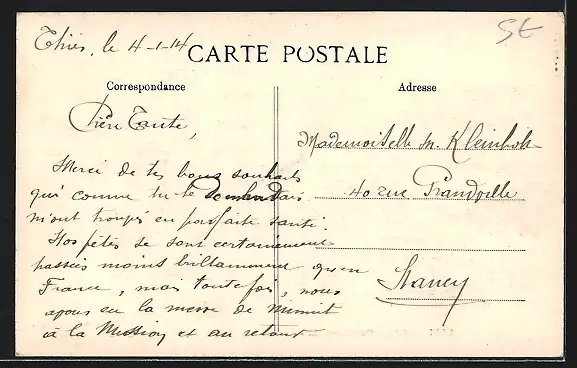 Thiès, le 4-1-14
SE
CARTE POSTALE
Correspondance
Adresse
Chère Tante,
Merci de tes bons souhaits
qui comme tu le demandais
m'ont trouvé en parfaite santé.
Nos fêtes se sont certainement
passées moins brillamment qu'en
France, mais toutefois, nous
avons eu la messe de Minuit
à la Mission et au retour
Mademoiselle M. Kleinholt
40 rue Grandville
Nancy